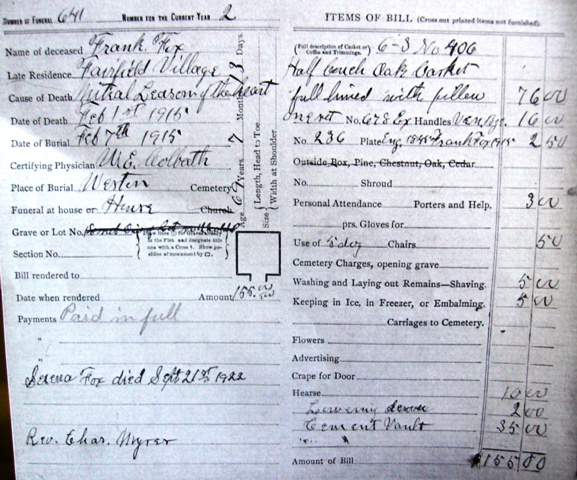 NUMBER OF FUNERAL 641 NUMBER FOR THE CURRENT YEAR 2
Name of deceased Frank Fox
Late Residence Fairfield Village
Cause of Death Mitral Leason of the heart
Date of Death Feb 1st 1915
Date of Burial Feb 7th 1915
Certifying Physician W.E.
Place of Burial Westin Cemetery
Funeral at house or House Church
Grave or Lot No.
Section No.
Bill rendered to
Date when rendered Amount 155.00
Payments Paid in full
"
"
Serena Fox died Sept 21st 1922
Rev. Chas. Myrer
Age 69 Years 7 Months 3 Days
Size { Length, Head to Toe
Width at Shoulder
ITEMS OF BILL (Cross out printed items not furnished)
(Full description of Casket or Coffin and Trimmings. 6-3 No 406
Half Couch Oak Casket
full lined with pillow 76 00
No. 678 Ex Handles 16 00
No. 236 Plate Eng. 1845 Frank Fox 1915 2 50
Outside Box, Pine, Chestnut, Oak, Cedar
No. Shroud
Personal Attendance Porters and Help. 3 00
prs. Gloves for
Use of 5 doz Chairs 50
Cemetery Charges, opening grave
Washing and Laying out Remains—Shaving. 5 00
Keeping in Ice, in Freezer, or Embalming. 5 00
Carriages to Cemetery.
Flowers
Advertising
Crape for Door
Hearse 10 00
Lowering device 2 00
Cement Vault 35 00
Amount of Bill $155 00